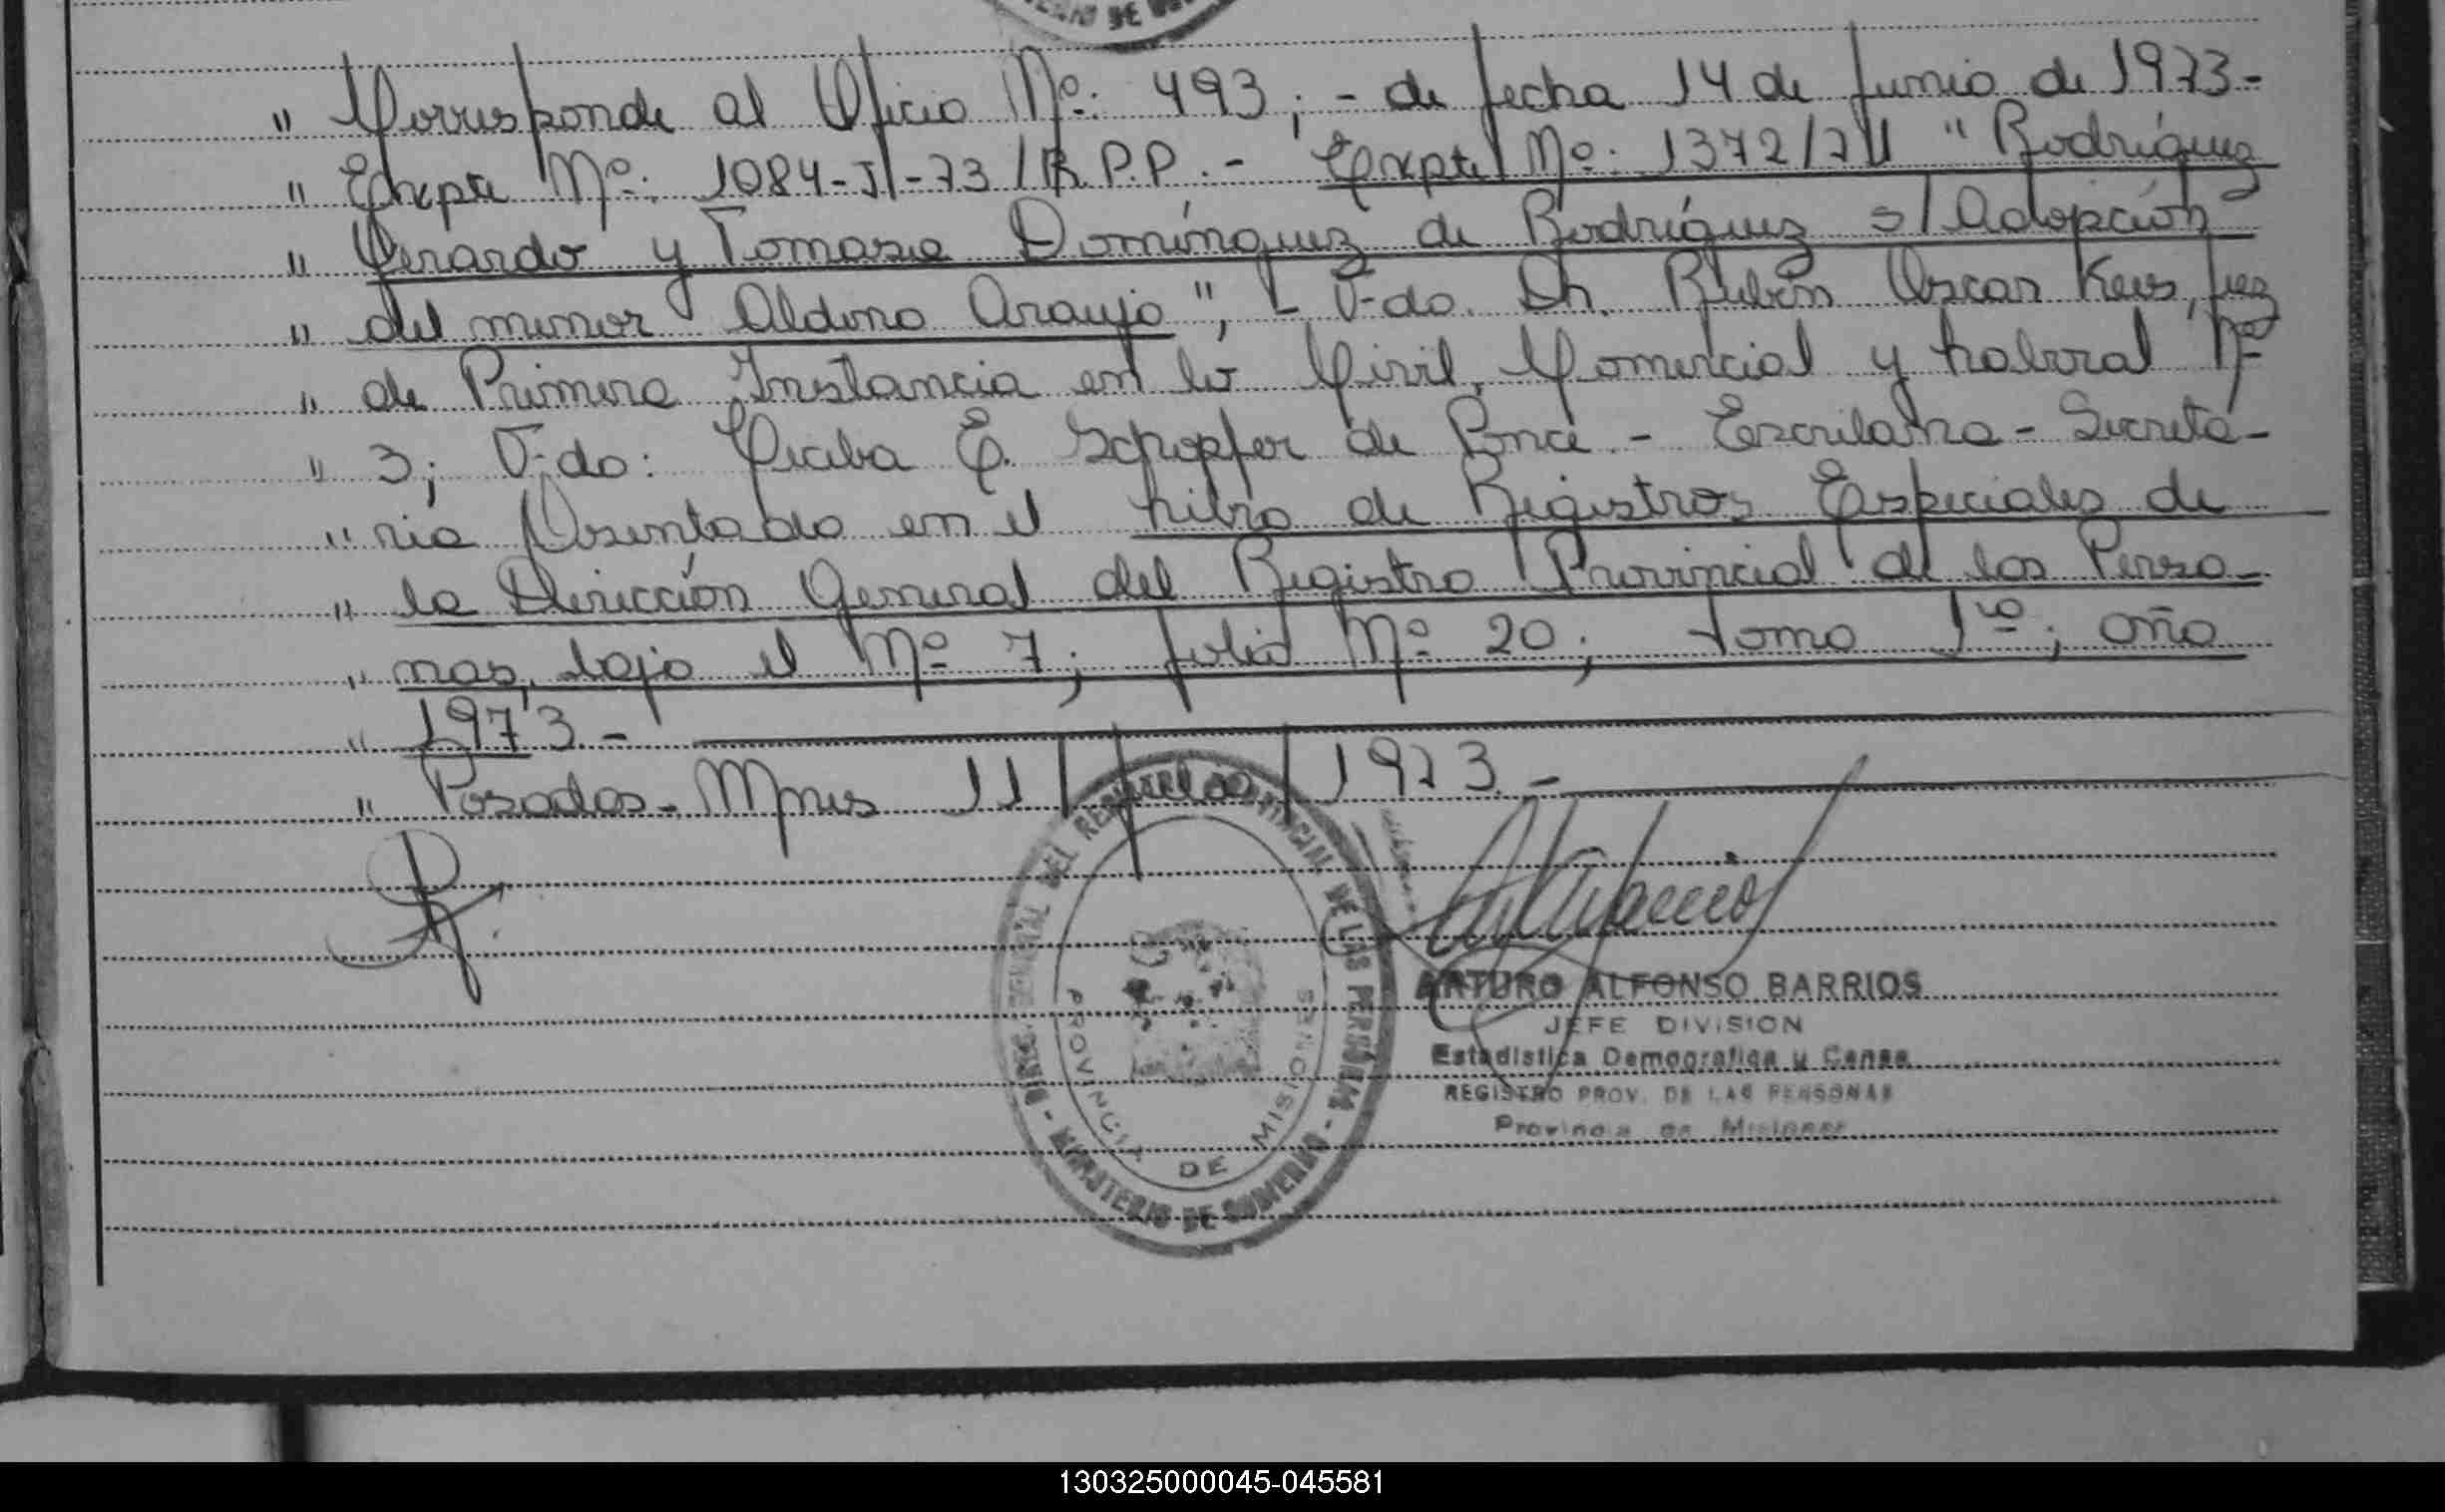 " Corresponde al Oficio Nº: 493; - de fecha 14 de Junio de 1973-
" Expte Nº: 1084-J-73/R.P.P. - Expte Nº: 1372/71 "Rodríguez
" Gerardo y Tomasa Domínguez de Rodríguez s/Adopción
" del menor Aldino Araujo", - F-do. Dr. Rubén Oscar Keis, Juez
" de Primera Instancia en lo Civil, Comercial y Laboral Nº
" 3; F-do: E. Schopfer de Ponce - Escribana - Secreta-
" ria Asentado en el Libro de Registros Especiales de
" la Dirección General del Registro Provincial de las Perso-
" nas, bajo el Nº 7; folio Nº 20; tomo 1ro; año
" 1973.-
" Posadas - Mnes 11/ /1973.-
DEL REGISTRO PROVINCIAL DE LAS PERSONAS - MINISTERIO DE GOBIERNO -
PROVINCIA DE MISIONES
ARTURO ALFONSO BARRIOS
JEFE DIVISION
Estadistica Demografica y Censo
REGISTRO PROV. DE LAS PERSONAS
Provincia de Misiones
130325000045-045581